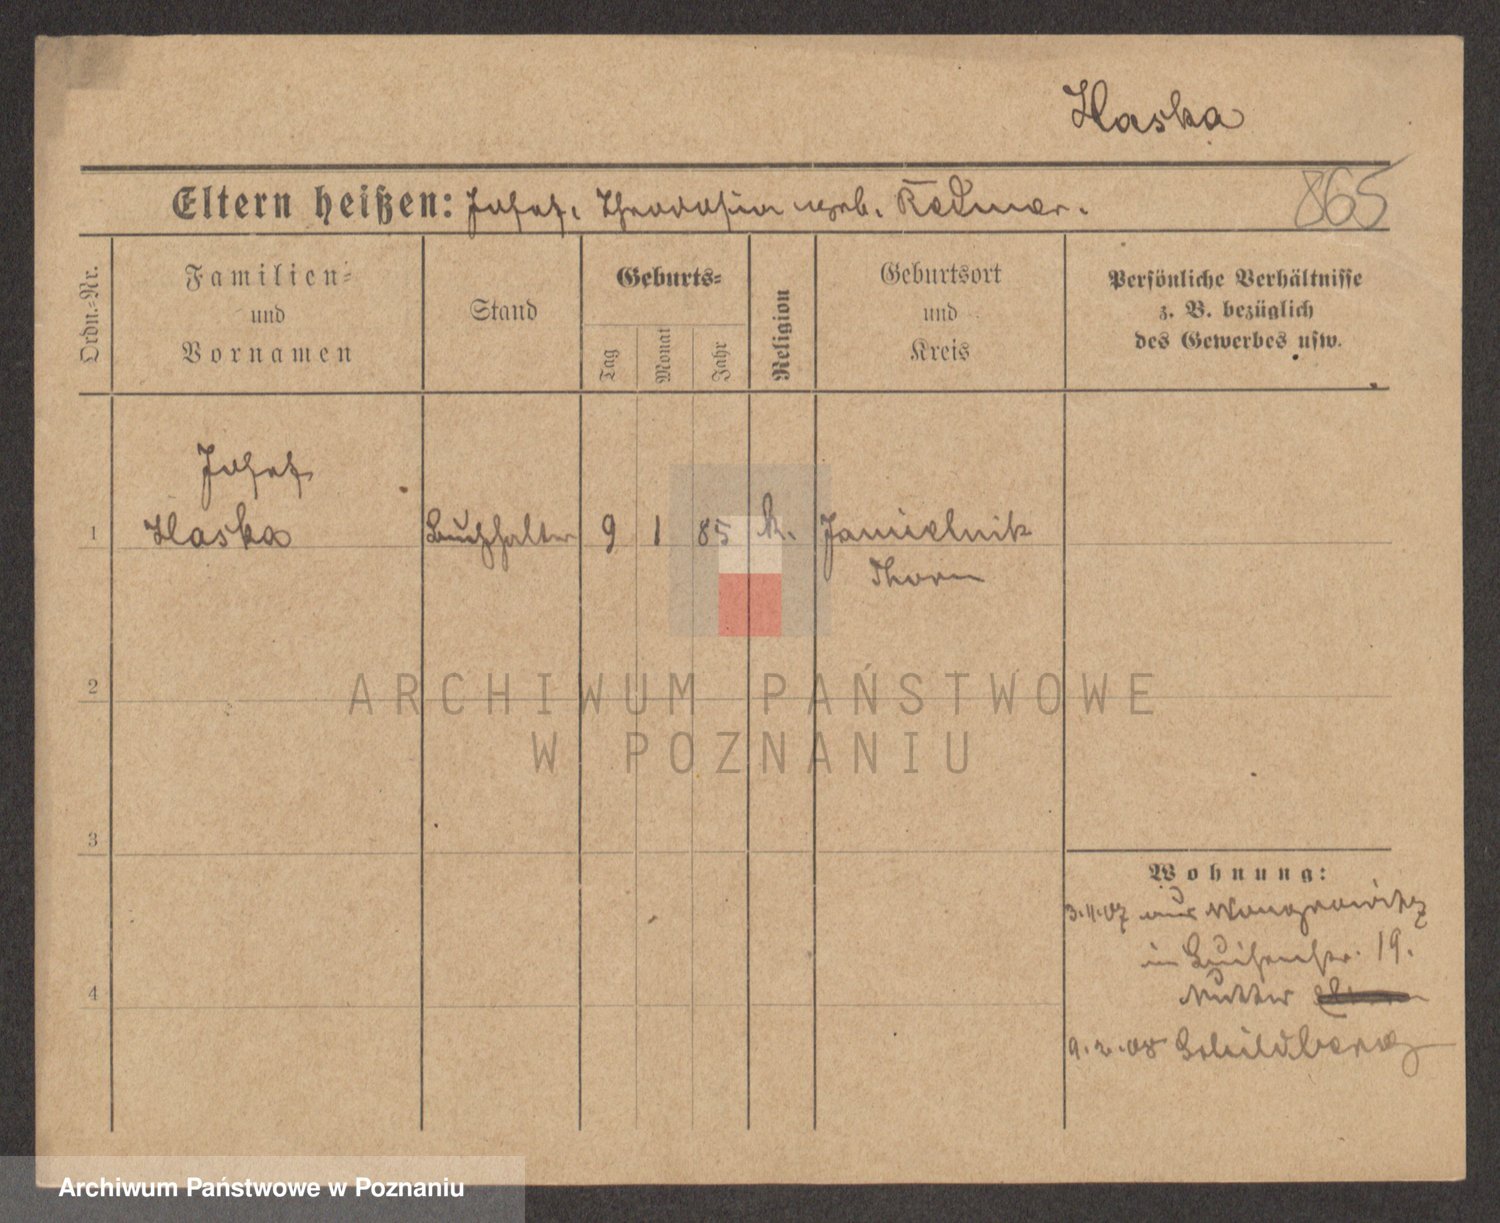 Haska
Eltern heißen: Josef, Theodosia geb. Redmer.
865
Ordn.=Nr.
Familien=
und
Vornamen
Stand
Geburts=
Tag
Monat
Jahr
Religion
Geburtsort
und
Kreis
Persönliche Verhältnisse
z. B. bezüglich
des Gewerbes usw.
Josef
1 Haska Buchhalter 9 1 85 k. Jamielnik
Thorn
2
3
4
Wohnung:
3.11.07 aus Wongrowitz
in Luisenstr. 19.
Mutter
9.2.08 Schildberg
ARCHIWUM PAŃSTWOWE
W POZNANIU
Archiwum Państwowe w Poznaniu